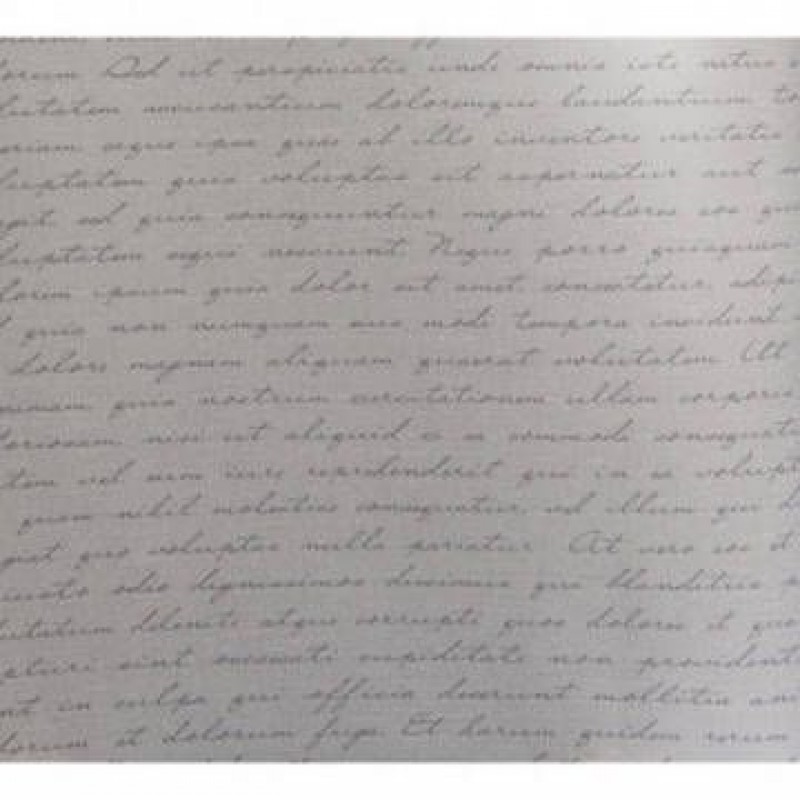 dolorum Sed ut perspiciatis unde omnis iste natus
voluptatem accusantium doloremque laudantium
aperiam, eaque ipsa quae ab illo inventore veritatis
voluptatem quia voluptas sit aspernatur aut
fugit, sed quia consequuntur magni dolores eos qui
voluptatem sequi nesciunt. Neque porro quisquam
dolorem ipsum quia dolor sit amet, consectetur, adipi
sed quia non numquam eius modi tempora incidunt
dolore magnam aliquam quaerat voluptatem. Ut
minima quis nostrum exercitationem ullam corporis
laboriosam, nisi ut aliquid ex ea commodi consequatur
autem vel eum iure reprehenderit qui in ea volupt
quam nihil molestiae consequatur, vel illum qui
fugiat quo voluptas nulla pariatur At vero eos
iusto odio dignissimos ducimus qui blanditiis
voluptatum deleniti atque corrupti quos dolores et quas
excepturi sint occaecati cupiditate non provident
sunt in culpa qui officia deserunt mollitia
laborum et dolorum fuga. Et harum quidem rerum